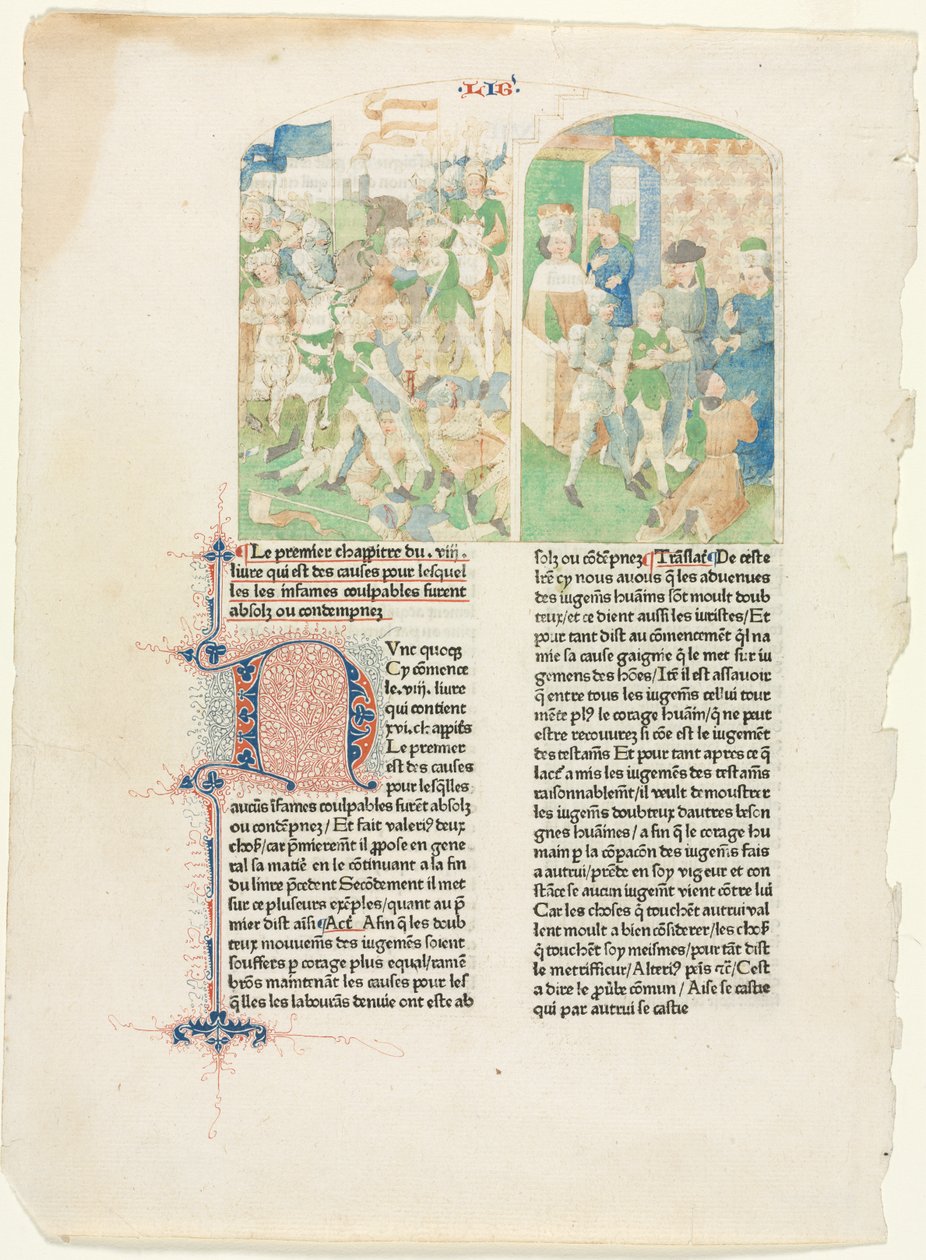 ·LIG'
¶Le premier chappitre du . viii .
liure qui est des causes pour lesquel
les les infames coulpables furent
absolz ou condempnez
Vnc quoqз
Cy cōmence
le .viij. liure
qui contient
xvi. chappiẗs
Le premier
est des causes
pour lesq̄lles
aucūs īfames coulpables furēt absolz
ou condēpnez / Et fait valeriꝰ deux
choses/car p̄mieremt̄ il ꝓpose en gene
ral sa matiē en le cōtinuant a la fin
du liure p̄cedent Secōdement il met
sur ce plusieurs exēples/quant au p̄
mier dist aīsi ¶Act̄ Afin q̄ les doub
teux mouuem̄s des iugemēs soient
souffers ꝑ corage plus equal/ramē
brōs maintenāt les causes pour les
q̄lles les labourās denuie ont este ab
solz ou cōdēpnez ¶Trāslat̄ ¶De ceste
lr̄e cy nous auōs q̄ les aduenues
des iugem̄s hūains sōt moult doub
teux/et ce dient aussi les iuristes/Et
pour tant dist au cōmencemēt q̄l na
mie sa cause gaignie q̄ le met sur iu
gemens des hōes/Itē il est assauoir
q̄ entre tous les iugem̄s cellui tour
mēte plꝰ le corage hūain/q̄ ne peut
estre recouurez si cōe est le iugemēt
des testam̄s Et pour tant apres ce q̄
lacē a mis les iugemēs des testam̄s
raisonnablemt̄/il veult demoustrer
les iugem̄s doubteux dautres beson
gnes hūaines / a fin q̄ le corage hu
main ꝑ la cōpacōn des iugem̄s fais
a autrui/prēde en soy vigeur et con
stāce se aucun iugemt̄ vient cōtre lui
Car les choses q̄ touchēt autrui val
lent moult a bien cōsiderer/les choses
q̄ touchēt soy meismes/pour tāt dist
le metrifficur/Alteriꝰ pēis ⁊c̄/Cest
a dire le ꝓūbe cōmun / Aise se castie
qui par autrui se castie